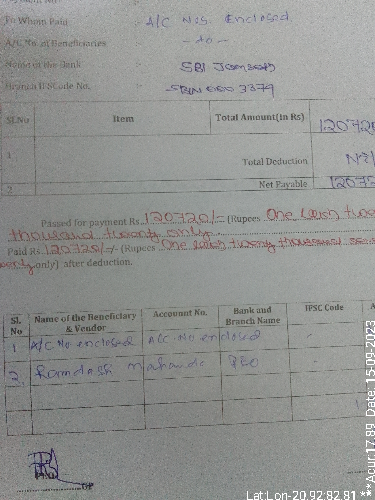 To Whom Paid :- A/C Nos Enclosed
A/C No. of Beneficiaries -do-
Name of the Bank SBI
Branch IFSCode No. SBIN 000 3379
Sl.No Item Total Amount(in Rs) 120720
1 Total Deduction Nil
2 Net Payable 120720
Passed for payment Rs 120720/- (Rupees One lakh
thousand twenty only
Paid Rs 120720/- (Rupees One lakh twenty thousand
only) after deduction.
Sl. No Name of the Beneficiary & Vendor Account No. Bank and Branch Name IFSC Code
1 A/C No enclosed A/C No enclosed -
2. -
Lat:Lon-20.92:82.81 ***Acur:17.89 Date:15-09-2023